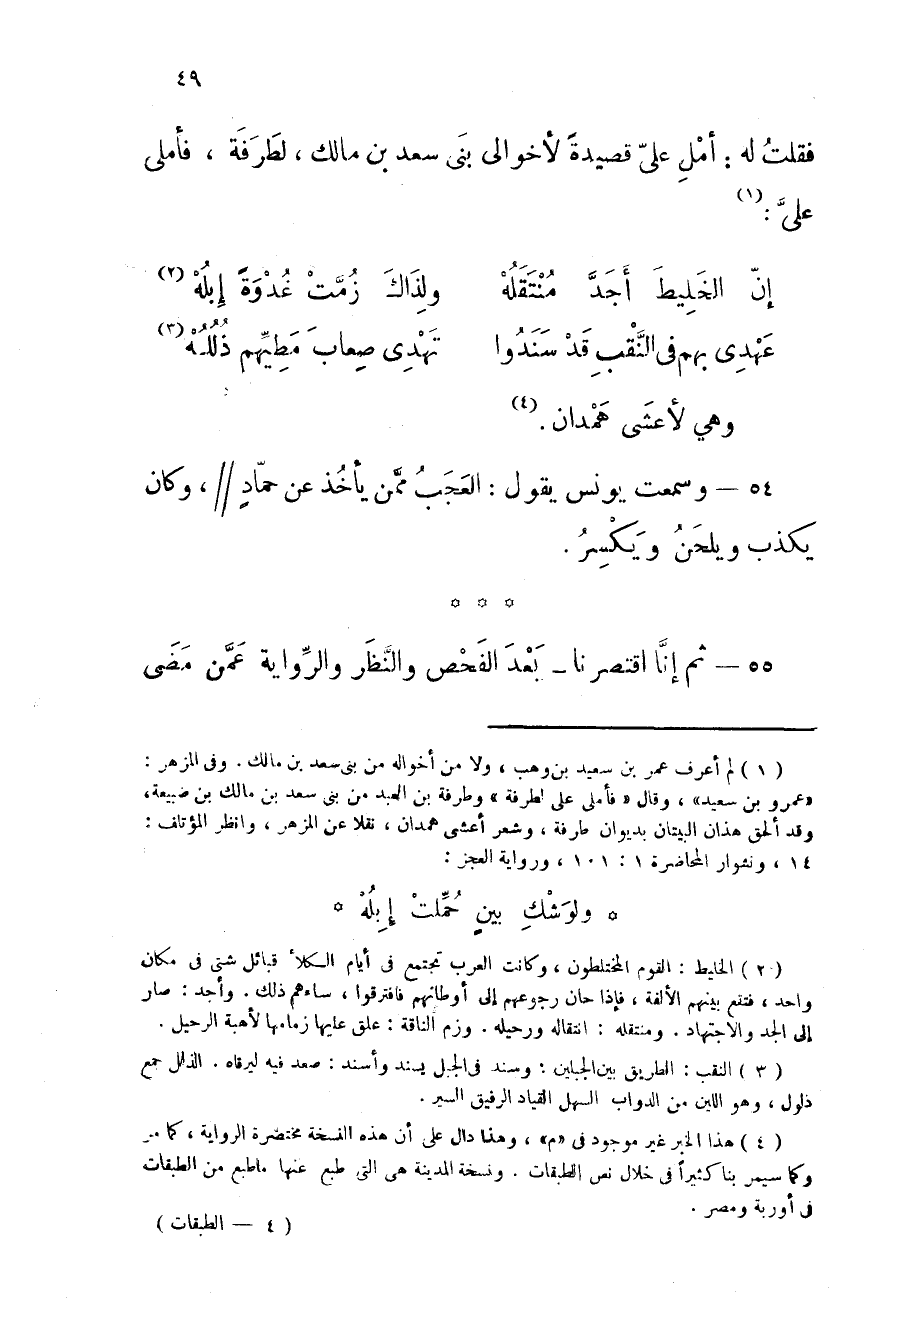 ٤٩
فقلتُ له : أمْلِ علىّ قصيدةً لأخوالى بنَى سعد بن مالك ، لطَرَفَة ، فأملى
علىَّ : (١)
إنّ الخَلِيطَ أَجَدَّ مُنْتَقَلُهْ ولِذَاكَ زُمَّتْ غُدْوَةً إبِلُهْ (٢)
عَهْدِى بهم فى النَّقْبِ قَدْ سَنَدُوا تَهْدِى صِعابَ مَطِيِّهم ذُلُلُهْ (٣)
وهي لأعشَى هَمْدان . (٤)
٥٤ — وسمعت يونس يقول : العَجَبُ ممَّن يأخُذ عن حمّادٍ // ، وكان
يكذب ويلحَنُ ويَكْسِرُ .
* * *
٥٥ — ثم إنَّا اقتصرنا — بَعْدَ الفَحْص والنَّظَر والرِّواية عَمَّن مَضَى
( ١ ) لم أعرف عمر بن سعيد بن وهب ، ولا من أخواله من بنى سعد بن مالك . وفى المزهر :
«عمرو بن سعيد» ، وقال « فأملى على لطرفة » وطرفة بن العبد من بنى سعد بن مالك بن ضبيعة،
وقد ألحق هذان البيتان بديوان طرفة ، وشعر أعشى همدان ، نقلا عن المزهر ، وانظر المؤتلف :
١٤ ، ونشوار المحاضرة ١ : ١٠١ ، ورواية العجز :
* ولوَشْكِ بينٍ حُمِّلتْ إبِلُهْ *
( ٢ ) الخليط : القوم المختلطون ، وكانت العرب تجتمع فى أيام الكلأ قبائل شتى فى مكان
واحد ، فتقع بينهم الألفة ، فإذا حان رجوعهم إلى أوطانهم فافترقوا ، ساءهم ذلك . وأجد : صار
إلى الجد والاجتهاد . ومنتقله : انتقاله ورحيله . وزم الناقة : علق عليها زمامها لأهبة الرحيل .
( ٣ ) النقب : الطريق بين الجبلين : وسند فى الجبل يسند وأسند : صعد فيه ليرقاه . الذلل جمع
ذلول ، وهو اللين من الدواب السهل القياد الرفيق السير .
( ٤ ) هذا الخبر غير موجود فى «م» ، وهذا دال على أن هذه النسخة مختصرة الرواية ، كما مر
وكما سيمر بنا كثيراً فى خلال نص الطبقات . ونسخة المدينة هى التى طبع عنها ماطبع من الطبقات
فى أوربة ومصر .
( ٤ — الطبقات )